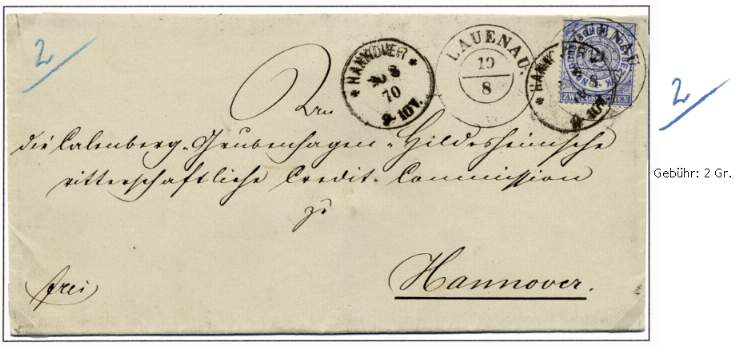 2
HANNOVER
8
70
9-10V.
LAUENAU.
19
8
2
Gebühr: 2 Gr.
An
die Calenberg-Grubenhagen-Hildesheimsche
ritterschaftliche Credit-Commission
zu
Hannover.
frei